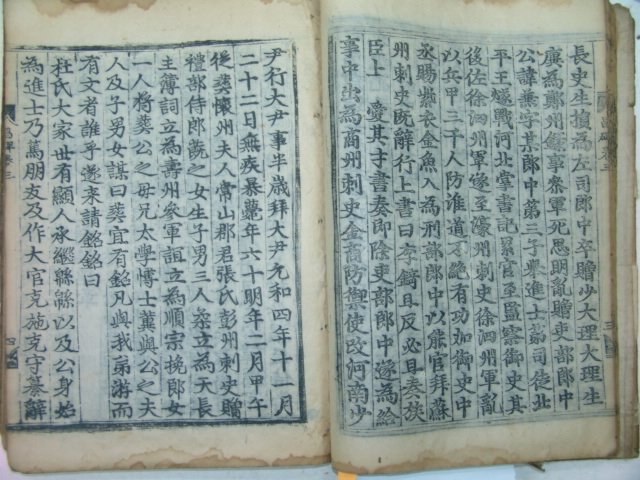 長史生損為左司郎中卒贈少大理大理生
廙為鄭州錄事參軍死思明亂贈吏部郎中
公諱兼字某郎中第三子舉進士第司徒北
平王燧戰河北掌書記累官至監察御史其
後佐徐泗州軍遂至濠州刺史徐泗州軍亂
以兵甲三千人防淮道不絶有功加御史中
丞賜紫衣金魚入為刑部郎中以能官拜蘇
州刺史旣辭行上書曰李錡且反必且奏族
臣上 愛其才書奏即除吏部郎中遂為給
事中出為商州刺史金商防禦使改河南少
尹行大尹事半歲拜大尹元和四年十一月
二十二日無疾暴薨年六十明年二月甲午
從葬懷州夫人常山郡君張氏彭州刺史贈
禮部侍郎蕆之女生子男三人柔立為天長
主簿詞立為壽州參軍誼立為順宗挽郎女
一人將葬公之母兄太學博士冀與公之夫
人及子男女謀曰葬宜有銘凡與我弟游而
有文者誰乎遂來請銘銘曰
杜氏大家世有顯人承繼緜緜以及公身始
為進士乃篤朋友及作大官克施克守纂辭
四